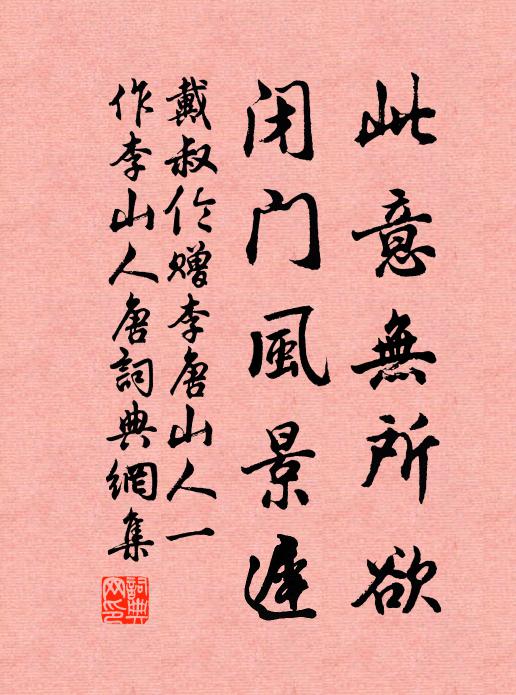 此意無所欲
闭门風景遲
戴叔伦赠李唐山人一
作李山人唐詞典網集
詞典网印